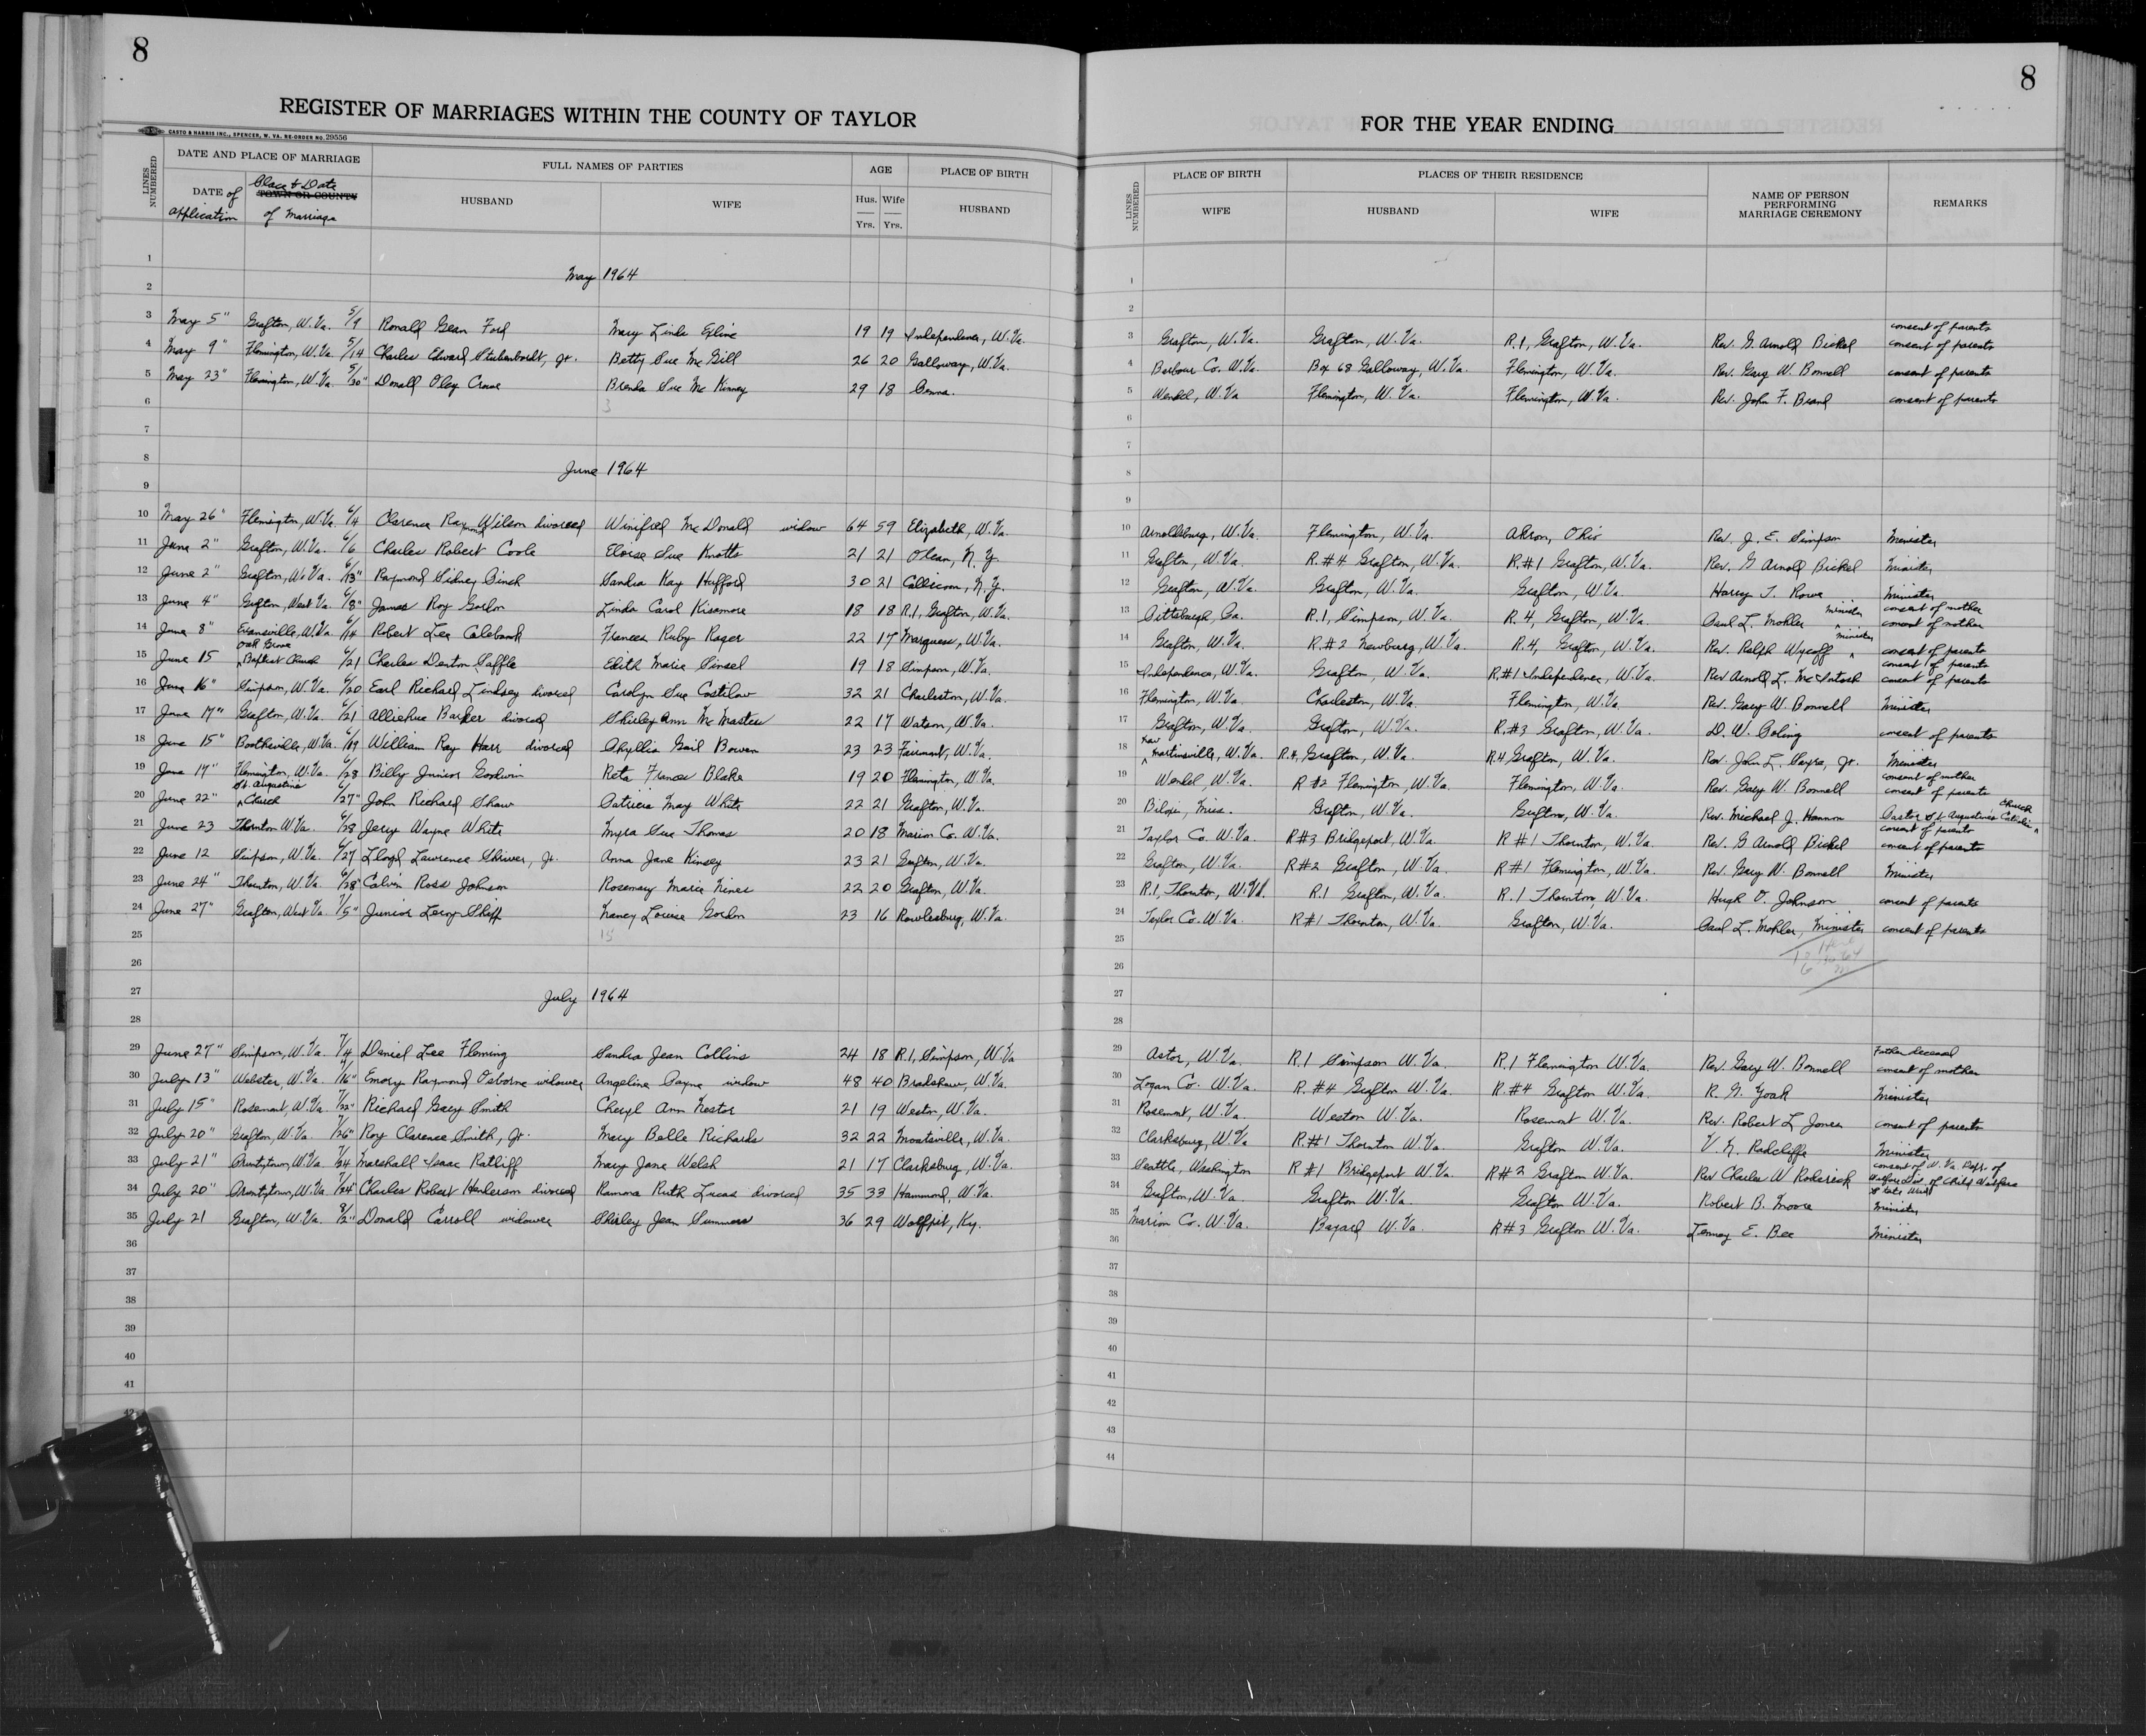 8
REGISTER OF MARRIAGES WITHIN THE COUNTY OF TAYLOR
CASTO & HARRIS INC., SPENCER, W. VA. RE-ORDER NO. 29556
LINES NUMBERED
DATE AND PLACE OF MARRIAGE FULL NAMES OF PARTIES AGE PLACE OF BIRTH
DATE of application Place & Date TOWN OR COUNTY of marriage HUSBAND WIFE Hus. Yrs. Wife Yrs. HUSBAND
1
May 1964
2
3 May 5" Grafton, W. Va. 5/9 Ronald Gean Ford Mary Linda Exline 19 19 Independence, W. Va.
4 May 9" Flemington, W. Va. 5/14 Charles Edward Stubenboldt, Jr. Betty Sue McGill 26 20 Galloway, W. Va.
5 May 23" Flemington, W. Va. 5/30" Donald Oley Crowe Brenda Sue McKinney 29 18 Penna.
6 3
7
8 June 1964
9
10 May 26" Flemington, W. Va. 6/4 Clarence Raymond Wilson divorced Winifred McDonald widow 64 59 Elizabeth, W. Va.
11 June 2" Grafton, W. Va. 6/6 Charles Robert Poole Eloise Sue Knotts 21 21 Olean, N. Y.
12 June 2" Grafton, W. Va. 6/13" Raymond Sidney Finch Sandra Kay Hufford 30 21 Callicoon, N. Y.
13 June 4" Grafton, West Va. 6/8" James Roy Gorbon Linda Carol Kisamore 18 18 R.1, Grafton, W. Va.
14 June 8" Evansville, W. Va. 6/14 Robert Lee Calebank Frances Ruby Rager 22 17 Marquess, W. Va.
15 June 15 Oak Grove Baptist Church 6/21 Charles Denton Saffle Edith Marie Sinsel 19 18 Simpson, W. Va.
16 June 16" Simpson, W. Va. 6/20 Earl Richard Lindsey divorced Carolyn Sue Costilow 32 21 Charleston, W. Va.
17 June 17" Grafton, W. Va. 6/21 Barker divorced Shirley Ann McMasters 22 17 Watson, W. Va.
18 June 15" Boothsville, W. Va. 6/19 William Ray Harr divorced Phyllis Gail Bowen 23 23 Fairmont, W. Va.
19 June 17" Flemington, W. Va. 6/28 Billy Junior Goodwin Reta Frances Blake 19 20 Flemington, W. Va.
20 June 22" St. Augustine Church 6/27" John Richard Shaw Patricia May White 22 21 Grafton, W. Va.
21 June 23 Thornton W. Va. 6/28 Jerry Wayne White Myra Sue Thomas 20 18 Marion Co. W. Va.
22 June 12 Simpson, W. Va. 6/27 Lloyd Lawrence Shriver, Jr. Anna Jane Kinsey 23 21 Grafton, W. Va.
23 June 24" Thornton, W. Va. 6/28" Calvin Ross Johnson Rosemary Marie Nines 22 20 Grafton, W. Va.
24 June 27" Grafton, West Va. 7/5" Junior Leroy Shiff Nancy Louise Gordon 23 16 Rowlesburg, W. Va.
25 15
26
27 July 1964
28
29 June 27" Simpson, W. Va. 7/4 Daniel Lee Fleming Sandra Jean Collins 24 18 R.1, Simpson, W. Va
30 July 13" Webster, W. Va. 7/16" Emory Raymond Osborne widower Angeline Payne widow 48 40 Bradshaw, W. Va.
31 July 15" Rosemont, W. Va. 7/22" Richard Gary Smith Cheryl Ann Nestor 21 19 Weston, W. Va.
32 July 20" Grafton, W. Va. 7/26" Roy Clarence Smith, Jr. Mary Belle Richards 32 22 Moatsville, W. Va.
33 July 21" Pruntytown, W. Va. 7/24 Marshall Isaac Ratliff Mary Jane Welsh 21 17 Clarksburg, W. Va.
34 July 20" Pruntytown, W. Va. 7/24" Charles Robert Henderson divorced Ramona Ruth Lucas divorced 35 33 Hammond, W. Va.
35 July 21 Grafton, W. Va. 8/2" Donald Carroll widower Shirley Jean Summers 36 29 Wolfpit, Ky.
36
37
38
39
40
41
42
8
FOR THE YEAR ENDING
LINES NUMBERED
PLACE OF BIRTH PLACES OF THEIR RESIDENCE NAME OF PERSON PERFORMING MARRIAGE CEREMONY REMARKS
WIFE HUSBAND WIFE
1
2
consent of parents
3 Grafton, W. Va. Grafton, W. Va. R.1, Grafton, W. Va. Rev. G. Arnold Bickel consent of parents
4 Barbour Co. W. Va. Box 68 Galloway, W. Va. Flemington, W. Va. Rev. Gary W. Bonnell consent of parents
5 Wendel, W. Va Flemington, W. Va. Flemington, W. Va. Rev. John F. Beard consent of parents
6
7
8
9
10 Arnoldsburg, W. Va. Flemington, W. Va. Akron, Ohio Rev. J. E. Simpson Minister
11 Grafton, W. Va. R.#4 Grafton, W. Va. R.#1 Grafton, W. Va. Rev. G Arnold Bickel Minister
12 Grafton, W. Va. Grafton, W. Va. Grafton, W. Va. Harry T. Rowe Minister
13 Pittsburgh, Pa. R.1, Simpson, W. Va. R.4, Grafton, W. Va. Paul L. Mohler minister consent of mother consent of mother
14 Grafton, W. Va. R.#2 Newburg, W. Va. R.4, Grafton, W. Va. Rev. Ralph Wycoff minister consent of parents
15 Independence, W. Va. Grafton, W. Va. R.#1 Independence, W. Va. Rev Arnold L. McIntosh consent of parents consent of parents
16 Flemington, W. Va. Charleston, W. Va. Flemington, W. Va. Rev. Gary W. Bonnell Minister
17 Grafton, W. Va. Grafton, W. Va. R.#3 Grafton, W. Va. D. W. Poling consent of parents
18 New Martinsville, W. Va. R.4, Grafton, W. Va. R.4 Grafton, W. Va. Rev. John L. Sayre, Jr. Minister
19 Wendel W. Va. R #2 Flemington, W. Va. Flemington, W. Va. Rev. Gary W. Bonnell consent of mother consent of parents
20 Biloxi, Miss. Grafton, W. Va. Grafton, W. Va. Rev. Michael J. Hannon Pastor St. Augustine's Catholic Church
21 Taylor Co. W. Va. R#3 Bridgeport, W. Va. R #1 Thornton, W. Va. Rev. G Arnold Bickel consent of parents consent of parents
22 Grafton, W. Va. R#2 Grafton, W. Va. R#1 Flemington, W. Va. Rev. Gary W. Bonnell Minister
23 R.1, Thornton, W. Va. R.1 Grafton, W. Va. R.1 Thornton, W. Va. Hugh O. Johnson consent of parents
24 Taylor Co. W. Va. R#1 Thornton, W. Va. Grafton, W. Va. Paul L. Mohler, Minister consent of parents
25
26
27
28
Father deceased
29 Astor, W. Va. R.1 Simpson W. Va. R.1 Flemington W. Va. Rev. Gary W. Bonnell consent of mother
30 Logan Co. W. Va. R.#4 Grafton W. Va. R.#4 Grafton W. Va. R. G. Yoak Minister
31 Rosemont, W. Va. Weston W. Va. Rosemont W. Va. Rev. Robert L Jones consent of parents
32 Clarksburg, W. Va R.#1 Thornton W. Va. Grafton W. Va. V. N. Radcliffe Minister
33 Seattle, Washington R #1 Bridgeport W. Va. R#2 Grafton W. Va. Rev Charles W Roderick consent of W. Va Dept. of Welfare Div. of Child Welfare State Ward
34 Grafton, W. Va Grafton W. Va. Grafton W. Va. Robert B. Moore Minister
35 Marion Co. W. Va. Bayard W. Va. R#3 Grafton W. Va. Lenney E. Bee Minister
36
37
38
39
40
41
42
43
44